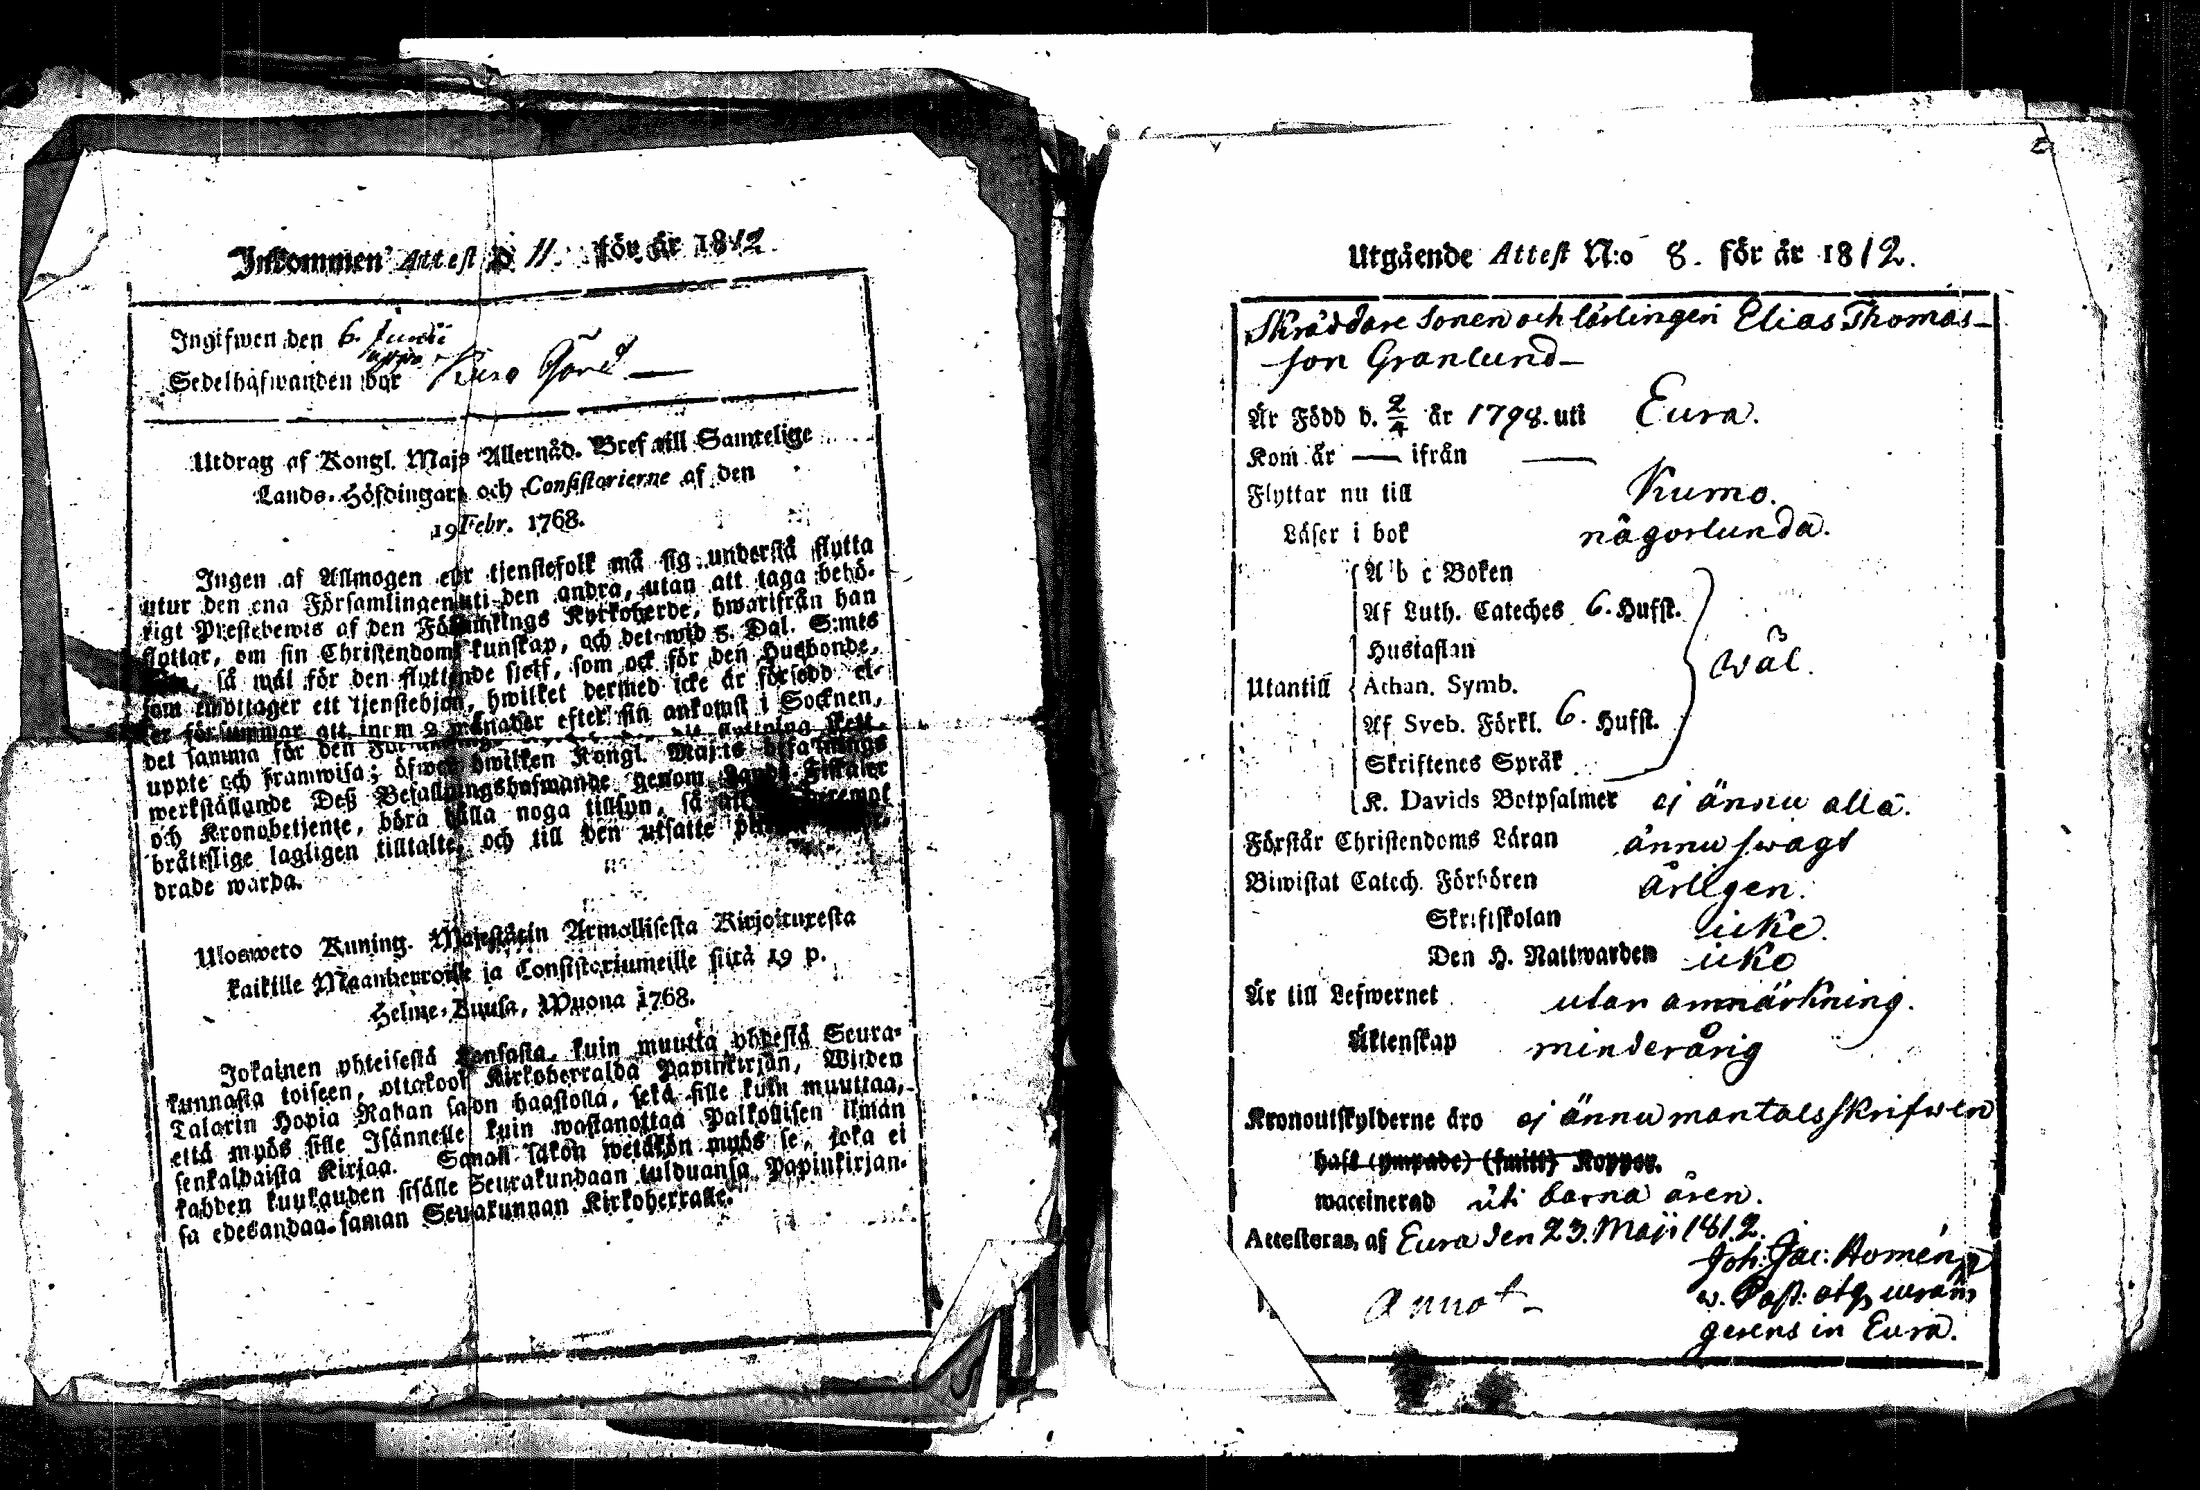 Inkommen Attest N:o 11. för år 1812.
Ingifwen den 6. Junii
Sedelhafwanden bor
Utdrag af Kongl. Majs Allernåd. Bref till Samtelige
Lands-Höfdingar och Consistorierne af den
19 Febr. 1768.
Ingen af Allmogen eller tjenstefolk må sig understå flytta
utur den ena Församlingen uti den andra, utan att taga behö-
rigt Prestebewis af den Församlings Kyrkoherde, hwarifrån han
flyttar, om sin Christendoms kunskap, och det wid 5. Dal. S:mts
så wäl för den flyttande sjelf, som ock för den Husbonde,
som emottager ett tjenstehjon, hwilket dermed icke är försedd el-
ler försummar att inom 2 månader efter sin ankomst i Socknen,
det samma för den
uppte och framwisa; öfwer hwilken Kongl. Maj:ts befallnings
werkställande Deß Befallningshafwande genom Lands Fiskaler
och Kronobetjente, böra hålla noga tillsyn, så att
bråttslige lagligen tilltalte, och till den utsatte
drade warda.
Ulosweto Kuning. Majestetin Armollisesta Kirjoituxesta
kaikille Maanherroille ja Consistoriumeille siitä 19 p.
Helme-Kuusa, Wuona 1768.
Jokainen yhteisestä Kansasta, kuin muutta yhdestä Seura-
kunnasta toiseen, ottakoon Kirkoherralda Papinkirjan, Wiiden
Talarin Hopia Rahan sakon haastolla, sekä sille kuin muuttaa,
että myös sille Isännelle kuin wastanottaa Palkollisen ilman
senkaldaista Kirjaa. Saman sakon wetäkön myös se, joka ei
kahden kuukauden sisälle Seurakundaan tulduansa Papinkirjan-
sa edesandaa saman Seurakunnan Kirkoherralle.
Utgående Attest N:o 8. för år 1812.
Skräddare Sonen och lärlingen Elias Thomas-
son Granlund-
Är Född d. 2/4 år 1798. uti Eura.
Kom år — ifrån —
Flyttar nu till Kumo.
Läser i bok någorlunda.
A b c Boken
Af Luth. Cateches 6. Hufst.
Hustaflan
Utantill Athan. Symb. wäl.
Af Sveb. Förkl. 6. Hufst.
Skriftenes Språk
K. Davids Botpsalmer ej ännu alla.
Förstår Christendoms Läran ännu swagt
Biwistat Catech. Förhören årligen.
Skriftskolan icke.
Den H. Nattwarden icke
Är till Lefwernet utan anmärkning.
Äktenskap minderårig
Kronoutskylderne äro ej ännu mantalsskrifwen
haft (ympade) (smitt) Koppor.
waccinerad uti barna åren.
Attesteras, af Eura den 23. Maji 1812.
Joh: Jac: Homén
Annot-
gerens in Eura.